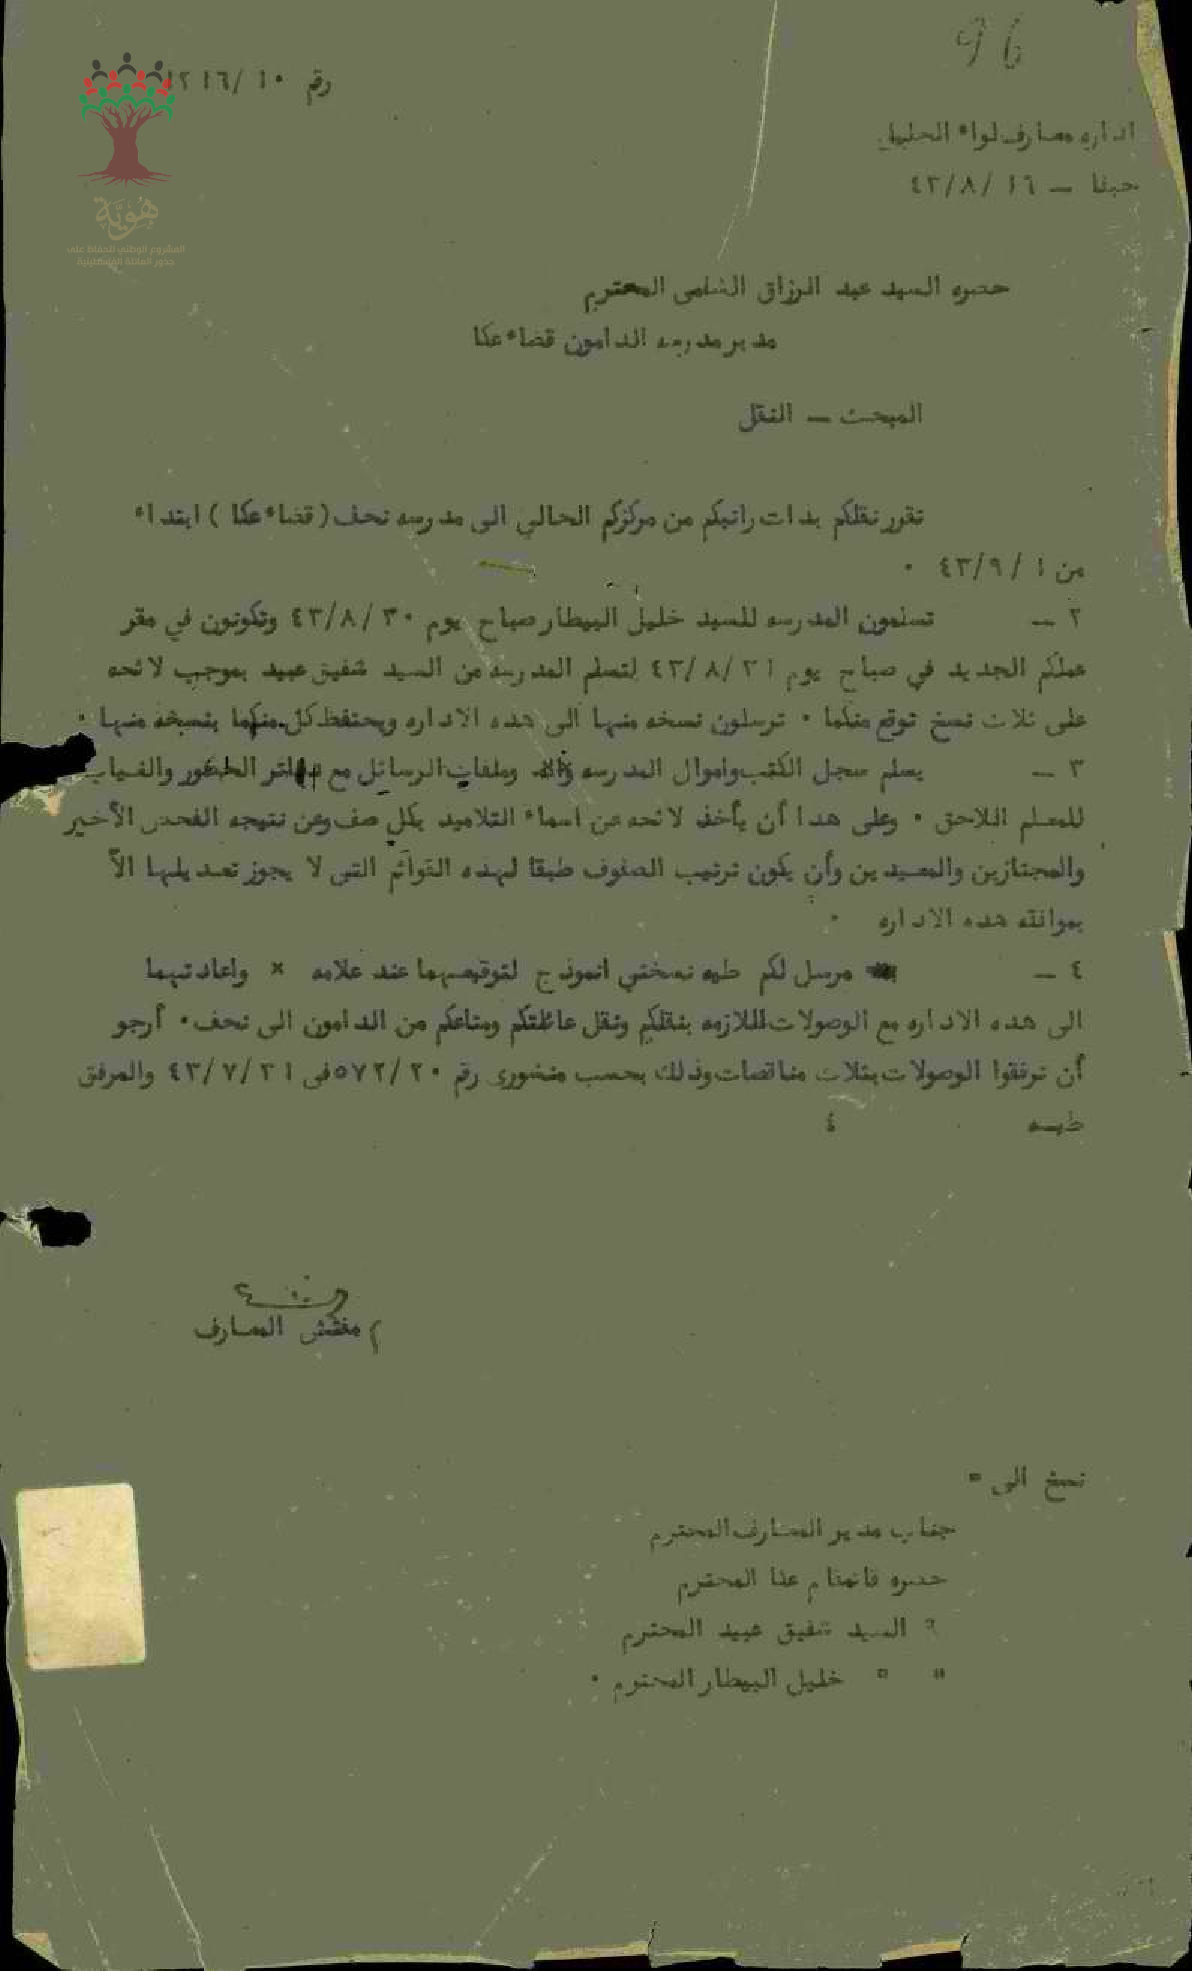 96
رقم ١٠/١٢١٦
اداره معارف لواء الجليل
حيفا — ١٦/٨/٤٣
هُوِيَّة
المشروع الوطني للحفاظ على
جذور العائلة الفلسطينية
حضره السيد عبد الرزاق الشامي المحترم
مدير مدرسه الدامون قضاء عكا
المبحث — النقل
تقرر نقلكم بذات راتبكم من مركزكم الحالي الى مدرسه نحف (قضاء عكا) ابتداء
من ١/٩/٤٣ ٠
٢ — تسلمون المدرسه للسيد خليل البيطار صباح يوم ٣٠/٨/٤٣ وتكونون في مقر
عملكم الجديد في صباح يوم ٣١/٨/٤٣ لتسلم المدرسه من السيد شفيق عبيد بموجب لائحه
على ثلاث نسخ توقع منكما ٠ ترسلون نسخه منها الى هذه الاداره ويحتفظ كل منكما بنسخه منها ٠
٣ — يسلم سجل الكتب واموال المدرسه وملفات الرسائل مع دفاتر الحضور والغياب
للمعلم اللاحق ٠ وعلى هذا أن يأخذ لائحه عن اسماء التلاميذ بكل صف وعن نتيجه الفحص الأخير
والمجتازين والمعيدين وأن يكون ترتيب الصفوف طبقا لهذه القوائم التى لا يجوز تعديلها الاّ
بموافقه هذه الاداره ٠
٤ — مرسل لكم طيه نسختي انموذج لتوقيعهما عند علامه × واعادتهما
الى هذه الاداره مع الوصولات اللازمه بنقلكم ونقل عائلتكم ومتاعكم من الدامون الى نحف٠ أرجو
أن ترفقوا الوصولات بثلاث مناقصات وذلك بحسب منشورى رقم ٥٧٢/٢٠ فى ٣١/٧/٤٣ والمرفق
طيه ٤
مفتش المعارف
نسخ الى =
جناب مدير المعارف المحترم
حضره قائمقام عكا المحترم
" السيد شفيق عبيد المحترم
" " خليل البيطار المحترم ٠